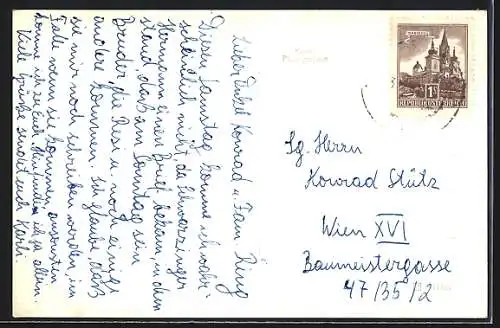 Lieber Onkel Konrad u. Fam. Ring
Diesen Samstag komme ich wahr-
scheinlich nicht da Schwarzinger
Hermann einen Brief bekam, in dem
stand, daß am Sonntag sein
Bruder, die Resi u. noch einige
andere kommen. Ich glaube, daß
sie mir noch schreiben werden, im
Falle wenn sie kommen ansonsten
komme ich zu Euch. Hinfinden ich ja allein.
Viele Grüße sendet euch Karli.
MARIAZELL
1S
REPUBLIK ÖSTERREICH
Sg. Herrn
Konrad Stütz
Wien XVI
Baumeistergasse
47/35/2